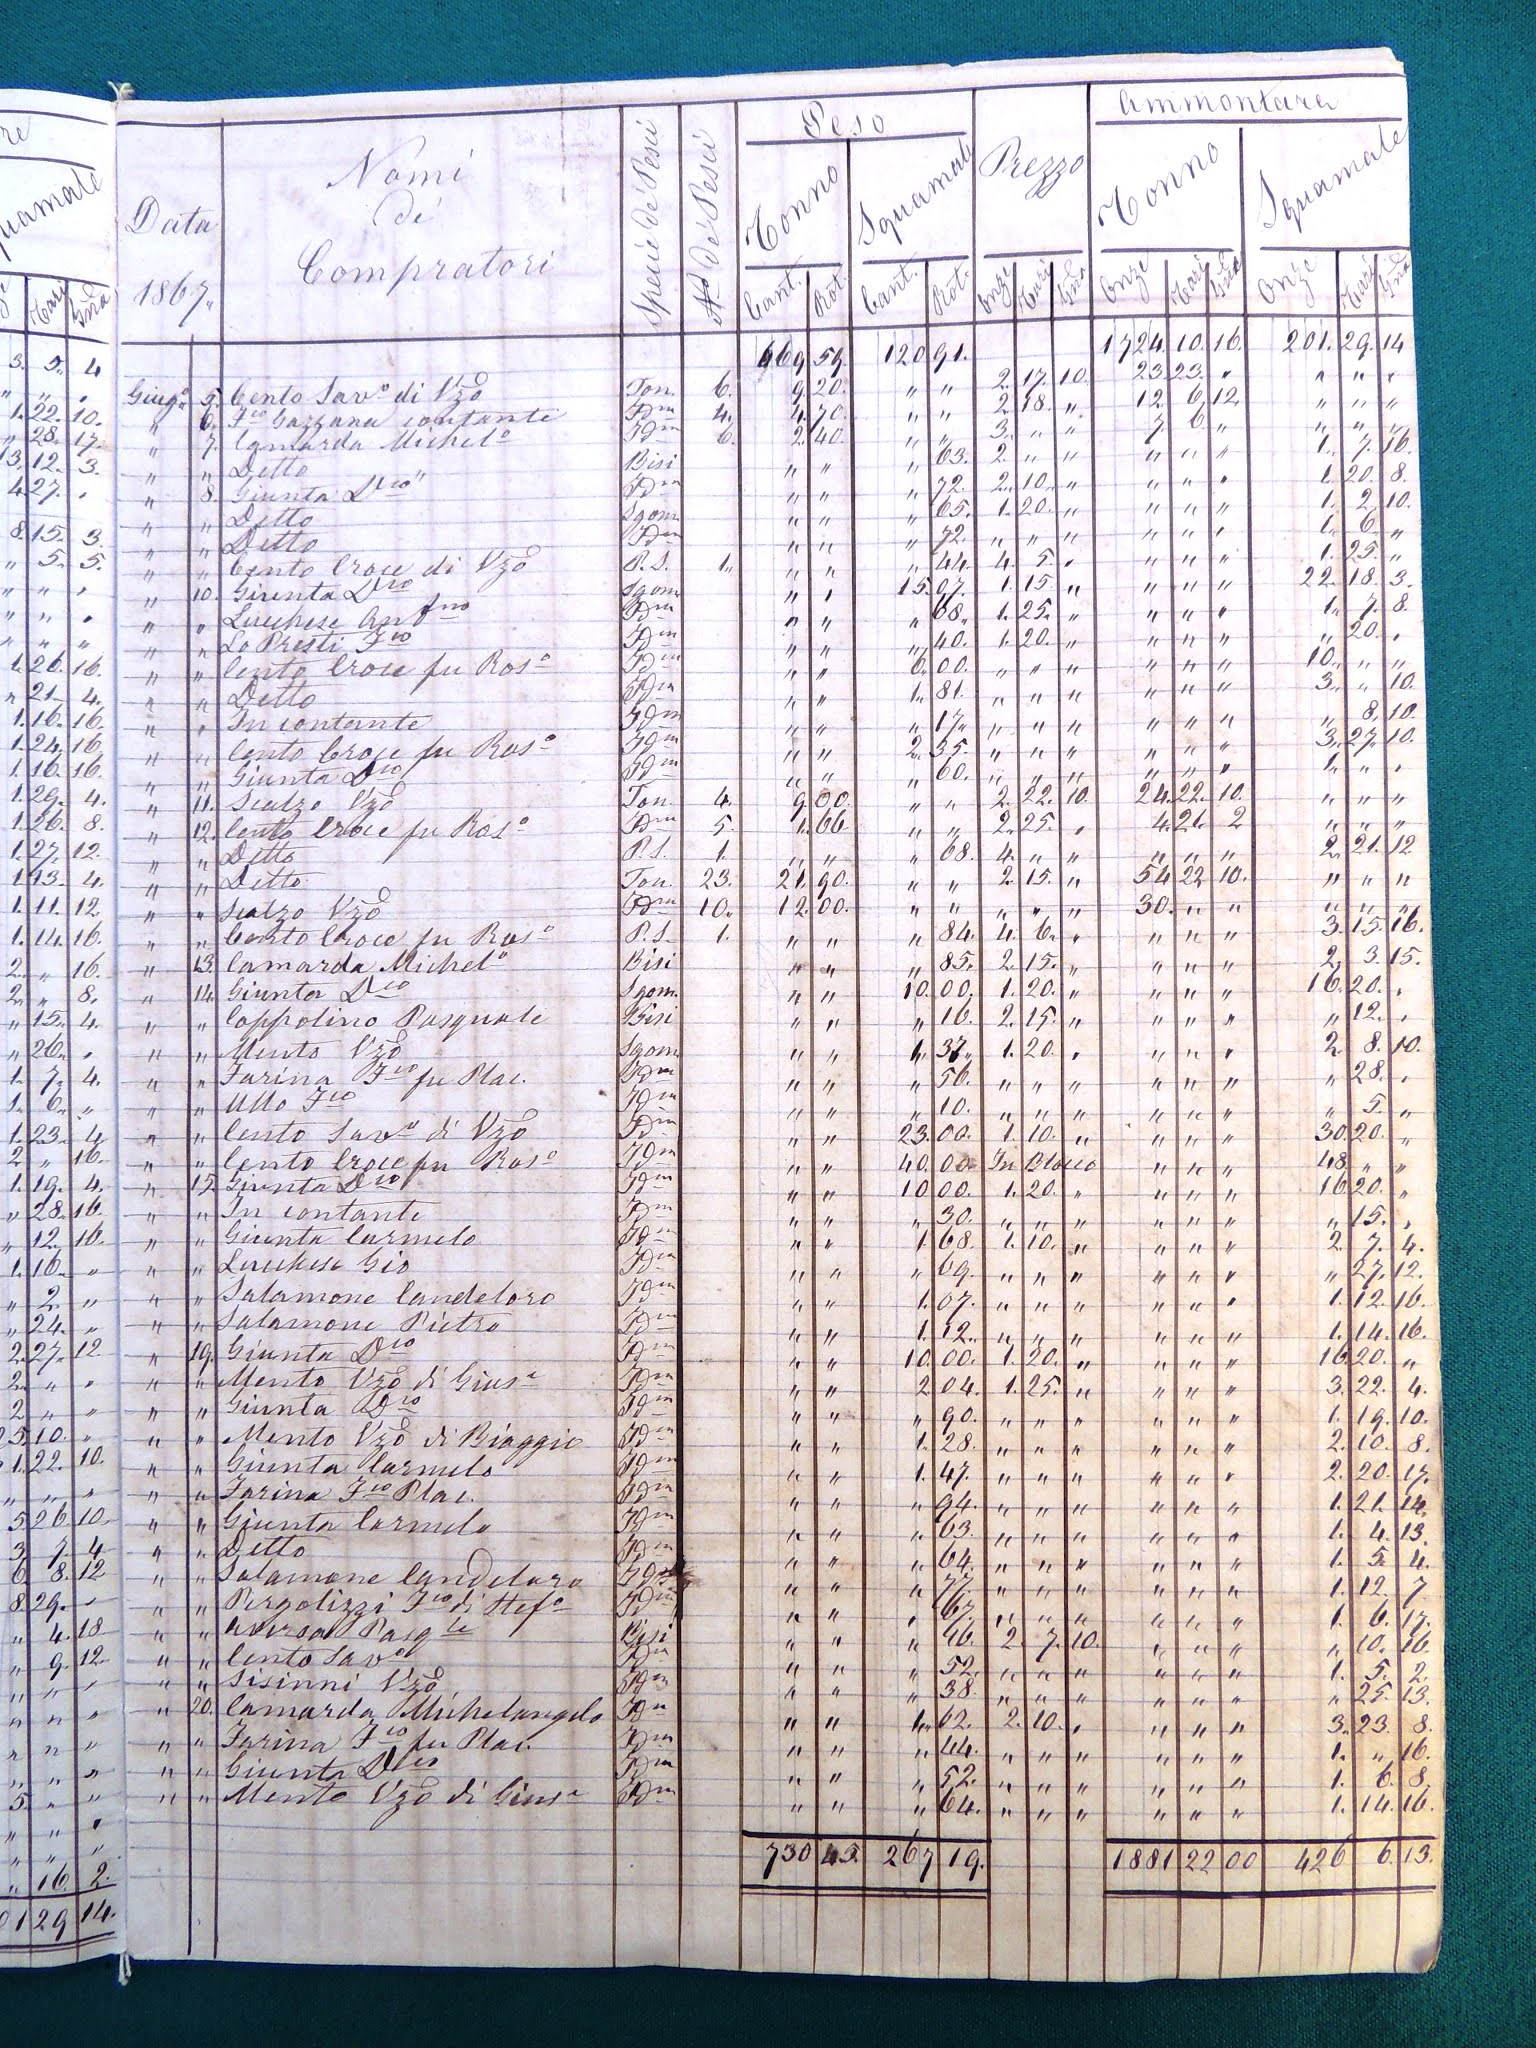 Data 1867 | Nomi di Compratori | Specie di Pesci | No. di Pesci | Peso | Prezzo | Ammontare
Tonno | Squamale | Tonno | Squamale
Cant. Rot. | Cant. Rot. | Onze Tari Gna | Onze Tari Gna | Onze Tari Gna
669. 59. 120 91. 1724. 10. 16. 201. 29. 14
Giugo. 5. Cento Savo di Vzo Ton. 6. 9. 20. " " 2. 17. 10. 23 23. " " " "
" 6. Fco Gazzana contante Idm 4. 4. 70. " " 2. 18. " 12. 6. 12. " " "
" 7. Camarda Michelo Idm 6. 2. 40. " " 3. " " 7. 6. " " " "
" " Detto Bisi " " " 63. 2. " " " " " 1. 7. 16.
" 8. Giunta Dco Idm " " " 72. 2. 10. " " " " 1. 20. 8.
" " Detto Sgom. " " " 65. 1. 20. " " " " 1. 2. 10.
" " Detto Idm " " " 72. " " " " " " 1. 6. "
" " Cento Croce di Vzo P.S. 1. " " " 44. 4. 5. " " " " 1. 25. "
" 10. Giunta Dco Sgom. " " 15. 07. 1. 15. " " " " 22. 18. 3.
" " Lucchese Antno Idm " " " 68. 1. 25. " " " " 1. 7. 8.
" " Lo Presti Fco Idm " " " 40. 1. 20. " " " " " 20. "
" " Cento Croce fu Roso Idm " " 6. 00. " " " " " " 10. " "
" " Detto Idm " " 1. 81. " " " " " " 3. " 10.
" " In contante Idm " " " 17. " " " " " " " 8. 10.
" " Cento Croce fu Roso Idm " " 2. 35. " " " " " " 3. 27. 10.
" " Giunta Dco Idm " " " 60. " " " " " " 1. " "
" 11. Scalzo Vzo Ton. 4. 9. 00. " " 2. 22. 10. 24. 22. 10. " " "
" 12. Cento Croce fu Roso Idm 5. 1. 66. " " 2. 25. " 4. 21. 2 " " "
" " Detto P.S. 1. " " " 68. 4. " " " " " 2. 21. 12
" " Detto Ton. 23. 21. 90. " " 2. 15. " 54 22 10. " " "
" " Scalzo Vzo Idm 10. 12. 00. " " " " " 30. " " " " "
" " Cento Croce fu Roso P.S. 1. " " " 84. 4. 6. " " " " 3. 15. 16.
" 13. Camarda Michelo Bisi " " " 85. 2. 15. " " " " 2. 3. 15.
" 14. Giunta Dco Sgom. " " 10. 00. 1. 20. " " " " 16. 20. "
" " Coppolino Pasquale Bisi " " " 16. 2. 15. " " " " " 12. "
" " Mento Vzo Sgom. " " 1. 37. 1. 20. " " " " 2. 8. 10.
" " Farina Fco fu Plac. Idm " " " 56. " " " " " " " 28. "
" " Ullo Fco Idm " " " 10. " " " " " " " 5. "
" " Cento Savo di Vzo Idm " " 23. 00. 1. 10. " " " " 30. 20. "
" " Cento Croce fu Roso Idm " " 40. 00 In Blocco " " " 48. " "
" 15. Giunta Dco Idm " " 10 00. 1. 20. " " " " 16 20. "
" " In contante Idm " " " 30. " " " " " " " 15. "
" " Giunta Carmelo Idm " " 1. 68. 1. 10. " " " " 2. 7. 4.
" " Lucchese Gio Idm " " " 69. " " " " " " " 27. 12.
" " Salamone Candeloro Idm " " 1. 07. " " " " " " 1. 12. 16.
" " Salamone Pietro Idm " " 1. 12. " " " " " " 1. 14. 16.
" 19. Giunta Dco Idm " " 10 00. 1. 20. " " " " 16 20. "
" " Mento Vzo di Giuse Idm " " 2 04. 1. 25. " " " " 3. 22. 4.
" " Giunta Dco Idm " " " 90. " " " " " " 1. 19. 10.
" " Mento Vzo di Biaggio Idm " " 1. 28. " " " " " " 2. 10. 8.
" " Giunta Carmelo Idm " " 1. 47. " " " " " " 2. 20. 17.
" " Farina Fco Plac. Idm " " " 94. " " " " " " 1. 21. 14.
" " Giunta Carmelo Idm " " " 63. " " " " " " 1. 4. 13.
" " Detto Idm " " " 64. " " " " " " 1. 5. 4.
" " Salamone Candeloro Idm " " " 77. " " " " " " 1. 12. 7.
" " Pergolizzi Fco di Stefo Idm " " " 67. " " " " " " 1. 6. 17.
" " Aversa Pasqle Bisi " " " 46. 2. 7. 10. " " " " 10. 16.
" " Cento Savo Idm " " " 52. " " " " " " 1. 5. 2.
" " Sisinni Vzo Idm " " " 38. " " " " " " " 25. 13.
" 20. Camarda Michelangelo Idm " " 1. 62. 2. 10. " " " " 3. 23. 8.
" " Farina Fco fu Plac. Idm " " " 44. " " " " " " 1. " 16.
" " Giunta Dco Idm " " " 52. " " " " " " 1. 6. 8.
" " Mento Vzo di Giuse Idm " " " 64. " " " " " " 1. 14. 16.
730 45. 267 19. 1881 22 00 426 6. 13.